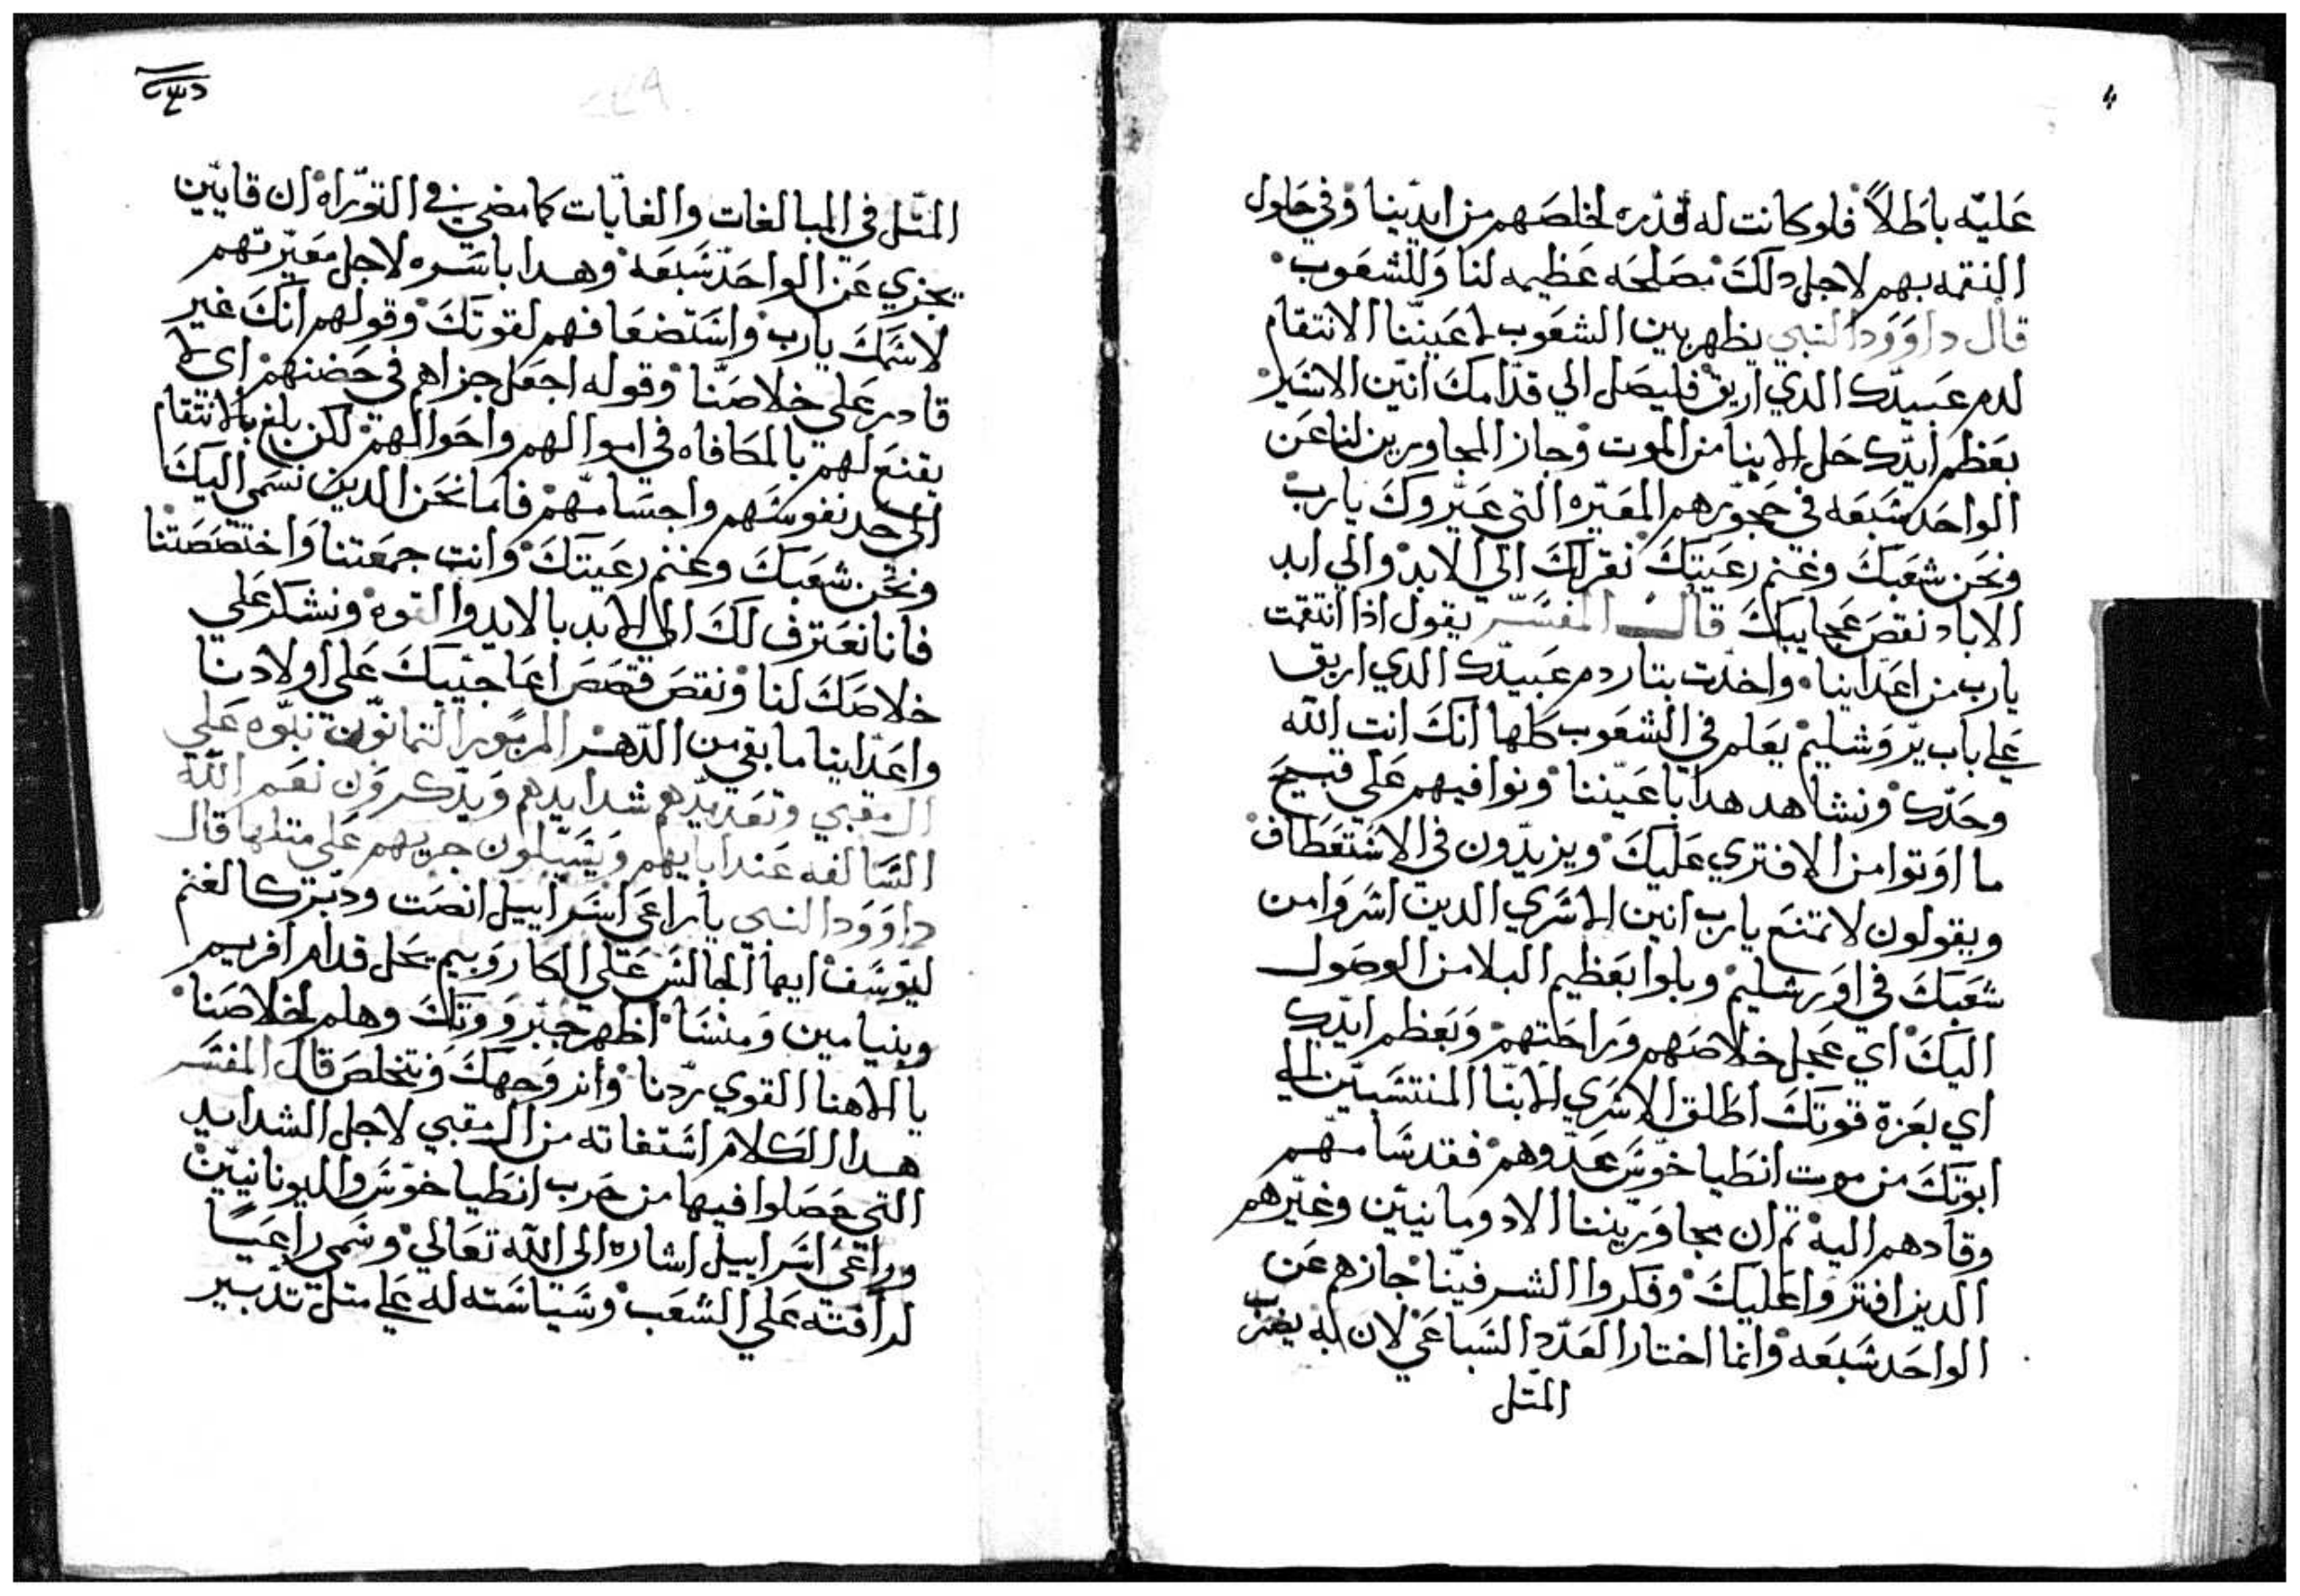 عليه باطلاً فلو كانت له قدره لخلصهم من ايدينا وفي حلول
النقمه بهم لاجل دلك مصلحه عظيمه لنا وللشعوب
قال داوود النبي يظهر بين الشعوب لاعيننا الانتقام
لدم عبيدك الدي اريق فليصل الي قدامك انين الاسير
بعظم ايدك حل الابنا من الموت وجاز المجاورين لنا عن
الواحد سبعه في حجورهم المعيره التي عيروك يارب
ونحن شعبك وغنم رعيتك نقر لك الي الابد والي ابد
الاباد نقص عجايبك قال المفسر يقول ادا انتقمت
يارب من اعداينا واخدت بتار دم عبيدك الدي اريق
علي باب يروشليم يعلم في الشعوب كلها انك انت الله
وحدك ونشاهد هدا باعيننا ونوافيهم علي قبيح
ما اوتوا من الافتري عليك ويزيدون في الاستعطاف
ويقولون لا تمنع يارب انين الاسري الدين اسروا من
شعبك في اورشليم وبلوا بعظيم البلا من الوصول
اليك اي عجل خلاصهم وراحتهم وبعظم ايدك
اي بعزة قوتك اطلق الاسري الابنا المنتسبين الي
ابوتك من موت انطياخوس عدوهم فقد سامهم
وقادهم اليه تم ان مجاوريننا الادومانيين وغيرهم
الدين افتروا عليك وفكروا الشر فينا جازهم عن
الواحد سبعه وانما اختار العدد السباعي لان به يضرب
المتل
المتل في المبالغات والغايات كما مضي في التوراه ان قايين
يجزي عن الواحد سبعه وهدا باسره لاجل معيرتهم
لاسمك يارب واستضعافهم لقوتك وقولهم انك غير
قادر علي خلاصنا وقوله اجعل جزاهم في حضنهم اي لا
يقنع لهم بالمكافاه في اموالهم واحوالهم لكن بلغ بالانتقام
الي حد نفوسهم واجسامهم فاما نحن الدين نسمي اليك
ونحن شعبك وغنم رعيتك وانت جمعتنا واختصصتنا
فانا نعترف لك الي الابد بالايد والقوه ونشكر علي
خلاصك لنا ونقص قصص اعاجيبك علي اولادنا
واعداينا ما بقي من الدهر المزمور التمانون تنبوه علي
المقبي وتعديدهم شدايدهم ويدكرون نعم الله
السالفه عند ابايهم ويسيلون جريهم علي متلها قال
داوود النبي يا راعي اسراييل انصت ودبرك كالغنم
ليوسف ايها الجالس علي الكاروبيم يحل قدام افريم
وبنيامين ومنسا اظهر جبروتك وهلم لخلاصنا
يا الاهنا القوي ردنا وانر وجهك ونتخلص قال المفسر
هدا الكلام استغاته من المقبي لاجل الشدايد
التي حصلوا فيها من حرب انطياخوس واليونانيين
وراعي اسراييل اشاره الي الله تعالي وسمي راعيًا
لرافته علي الشعب وسياسته له علي متل تدبير